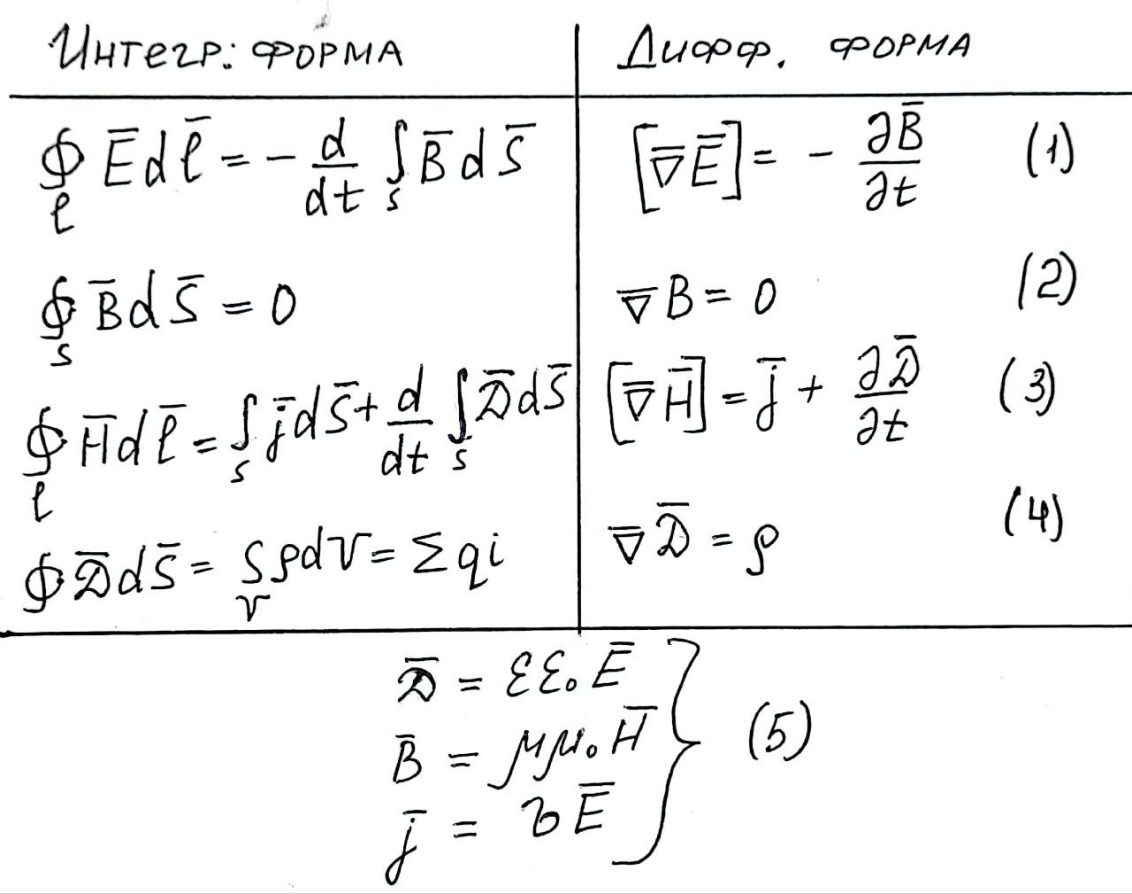 Интегр: форма | Дифф. форма
∮_ℓ E̅ d ℓ̅ = - d/dt ∫_S B̅ d S̅ | [∇̅ E̅] = - ∂B̅/∂t (1)
∮_S B̅ d S̅ = 0 | ∇̅ B = 0 (2)
∮_ℓ H̅ d ℓ̅ = ∫_S j̅ d S̅ + d/dt ∫_S D̅ d S̅ | [∇̅ H̅] = j̅ + ∂D̅/∂t (3)
∮ D̅ d S̅ = ∫_V ρ dV = Σ qi | ∇̅ D̅ = ρ (4)
D̅ = εε₀ E̅
B̅ = μμ₀ H̅ } (5)
j̅ = σ E̅